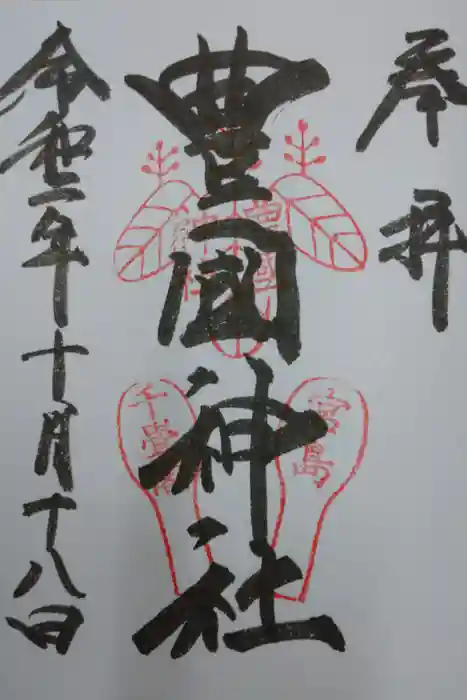 奉拝
豊國神社
豊國
神社
宮島
千畳閣
令和二年十月十八日